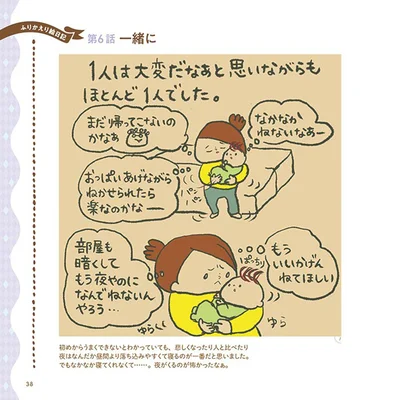 ふりかえり絵日記
第6話 一緒に
1人は大変だなあと思いながらも
ほとんど1人でした。
まだ帰ってこないの
かなぁ
なかなか
ねないなあー
おっぱいあげながら
ねかせられたら
楽なのかなー
部屋も
暗くして
もう夜やのに
なんでねないん
やろう…
ぱっちり
もう
いいかげん
ねてほしい
ゆら
ゆら
初めからうまくできないとわかっていても、悲しくなったり人と比べたり
夜はなんだか昼間より落ち込みやすくて寝るのが一番だと思いました。
でもなかなか寝てくれなくて……。夜がくるのが怖かったなぁ。
38